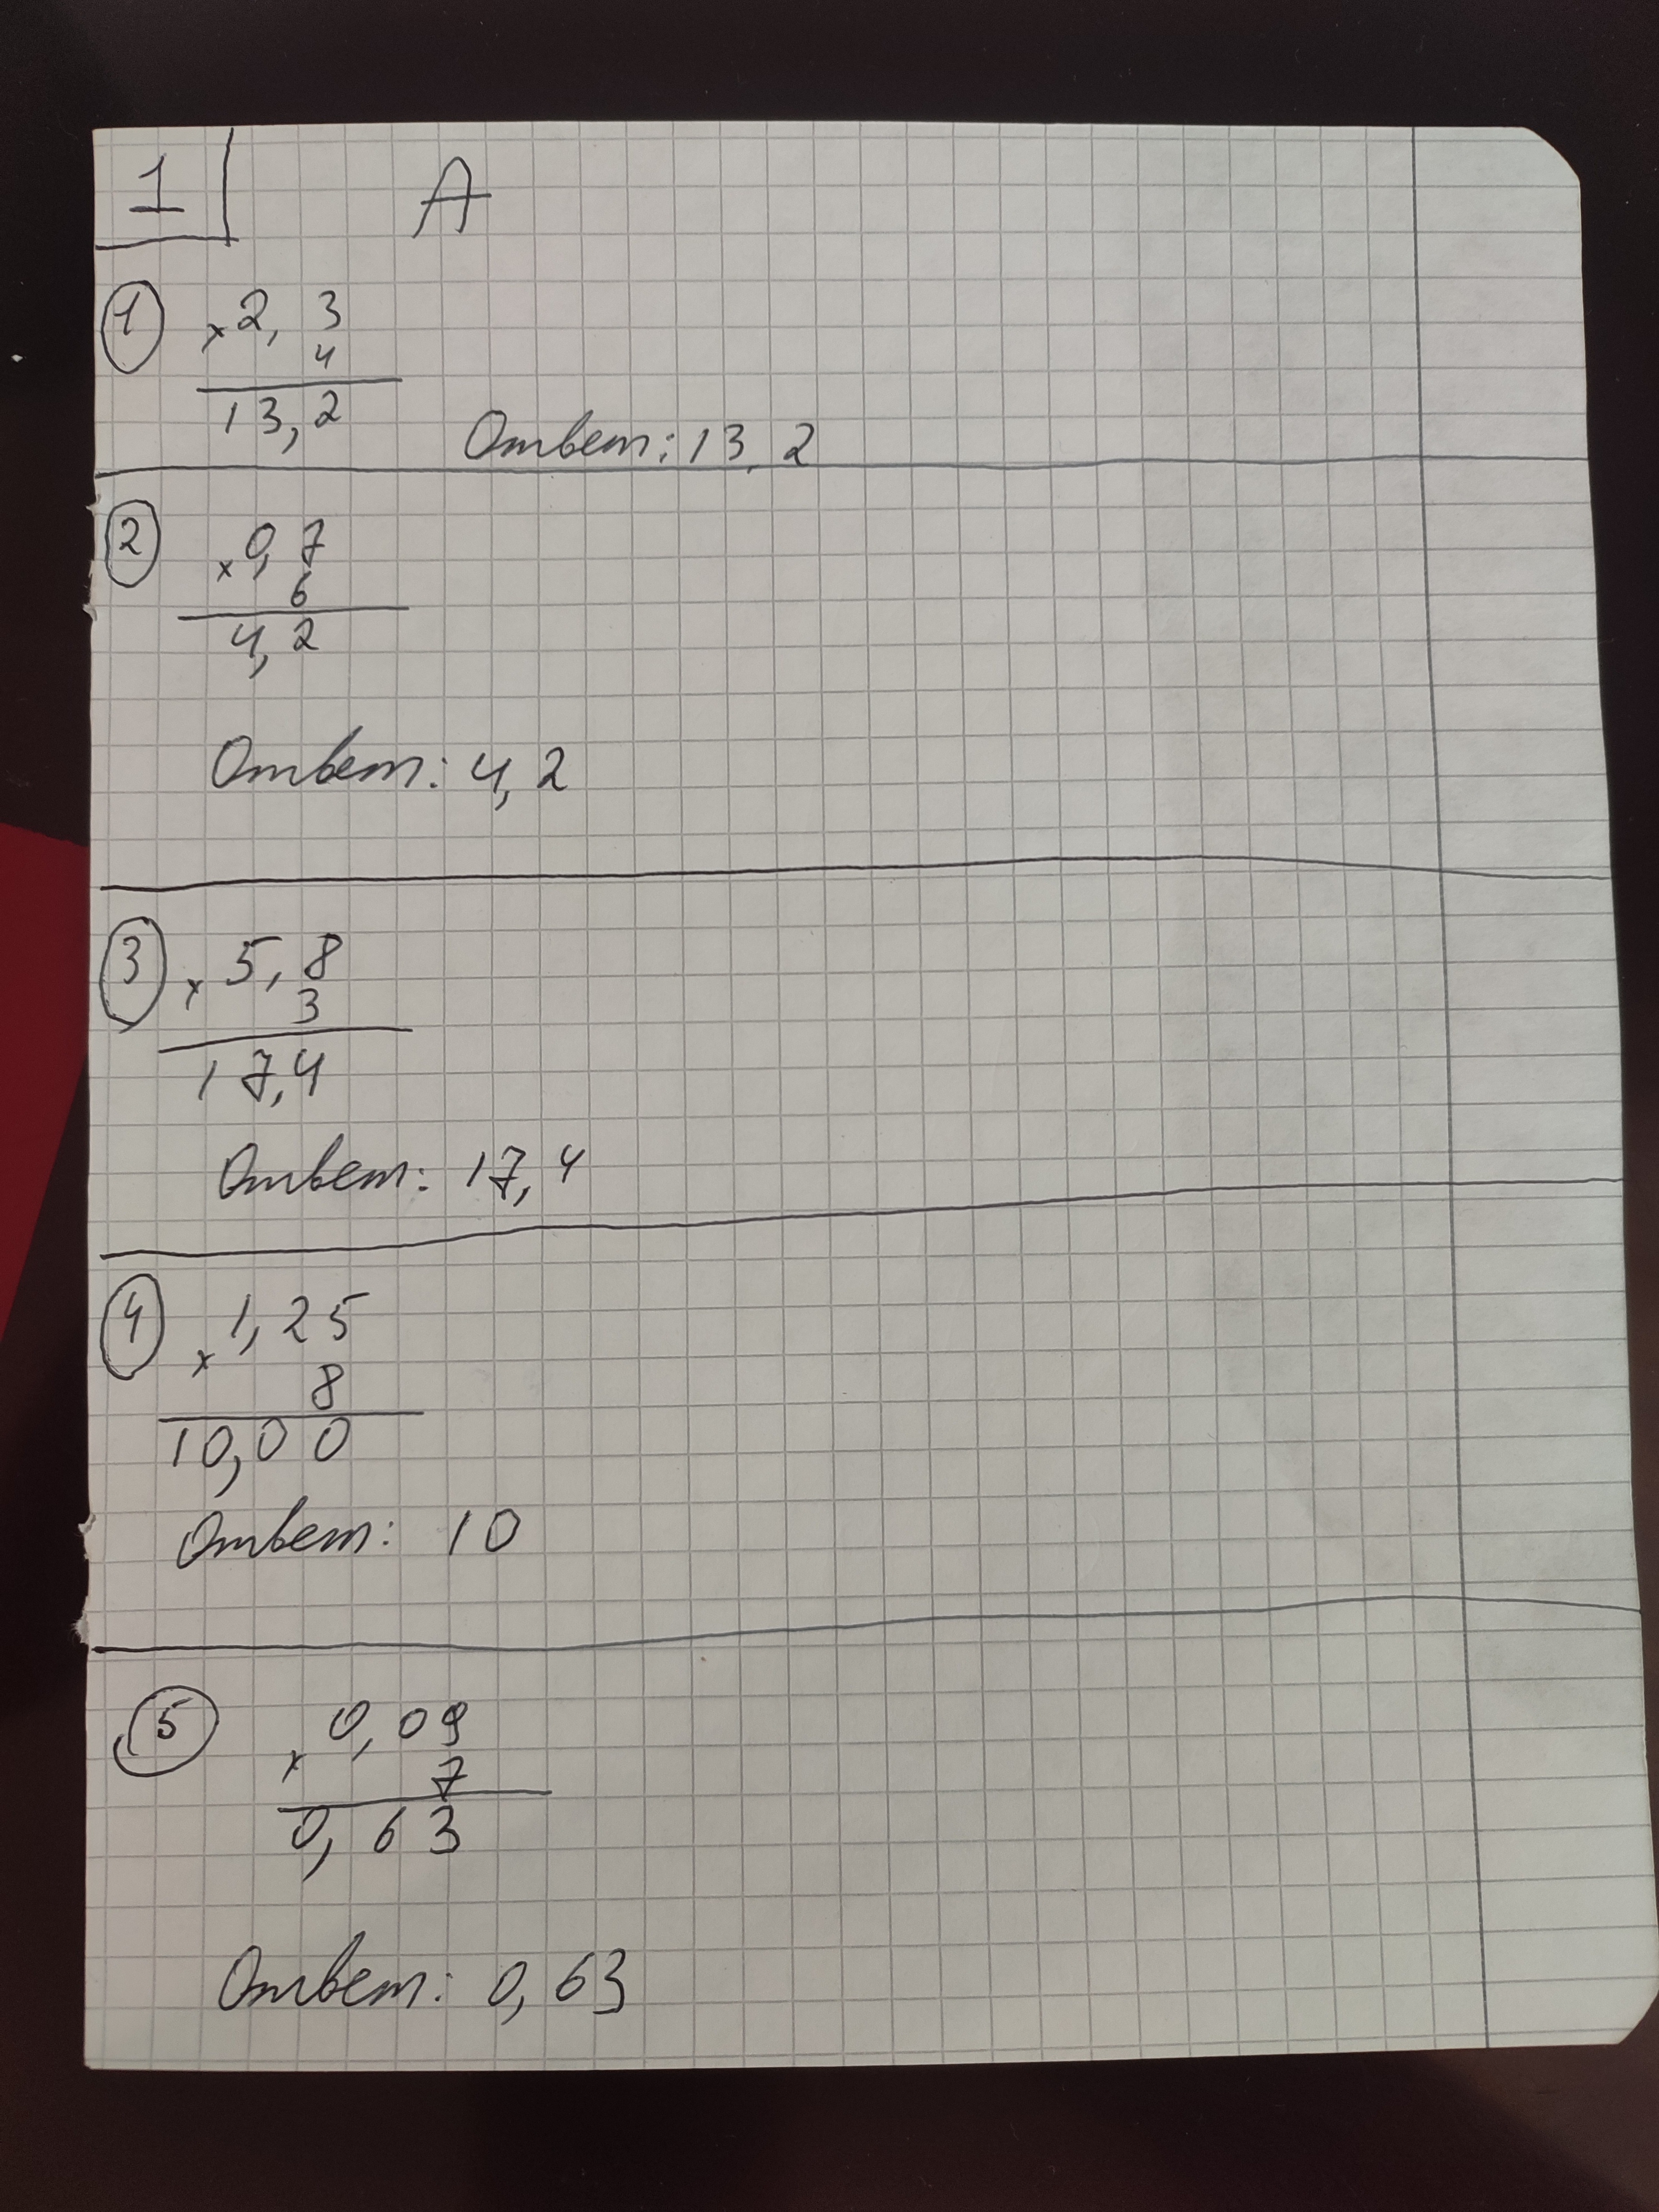 1 А
1 × 2, 3
4
13,2
Ответ: 13,2
2 × 0,7
6
4,2
Ответ: 4,2
3 × 5,8
3
17,4
Ответ: 17,4
4 × 1,25
8
10,00
Ответ: 10
5 × 0,09
7
0,63
Ответ: 0,63